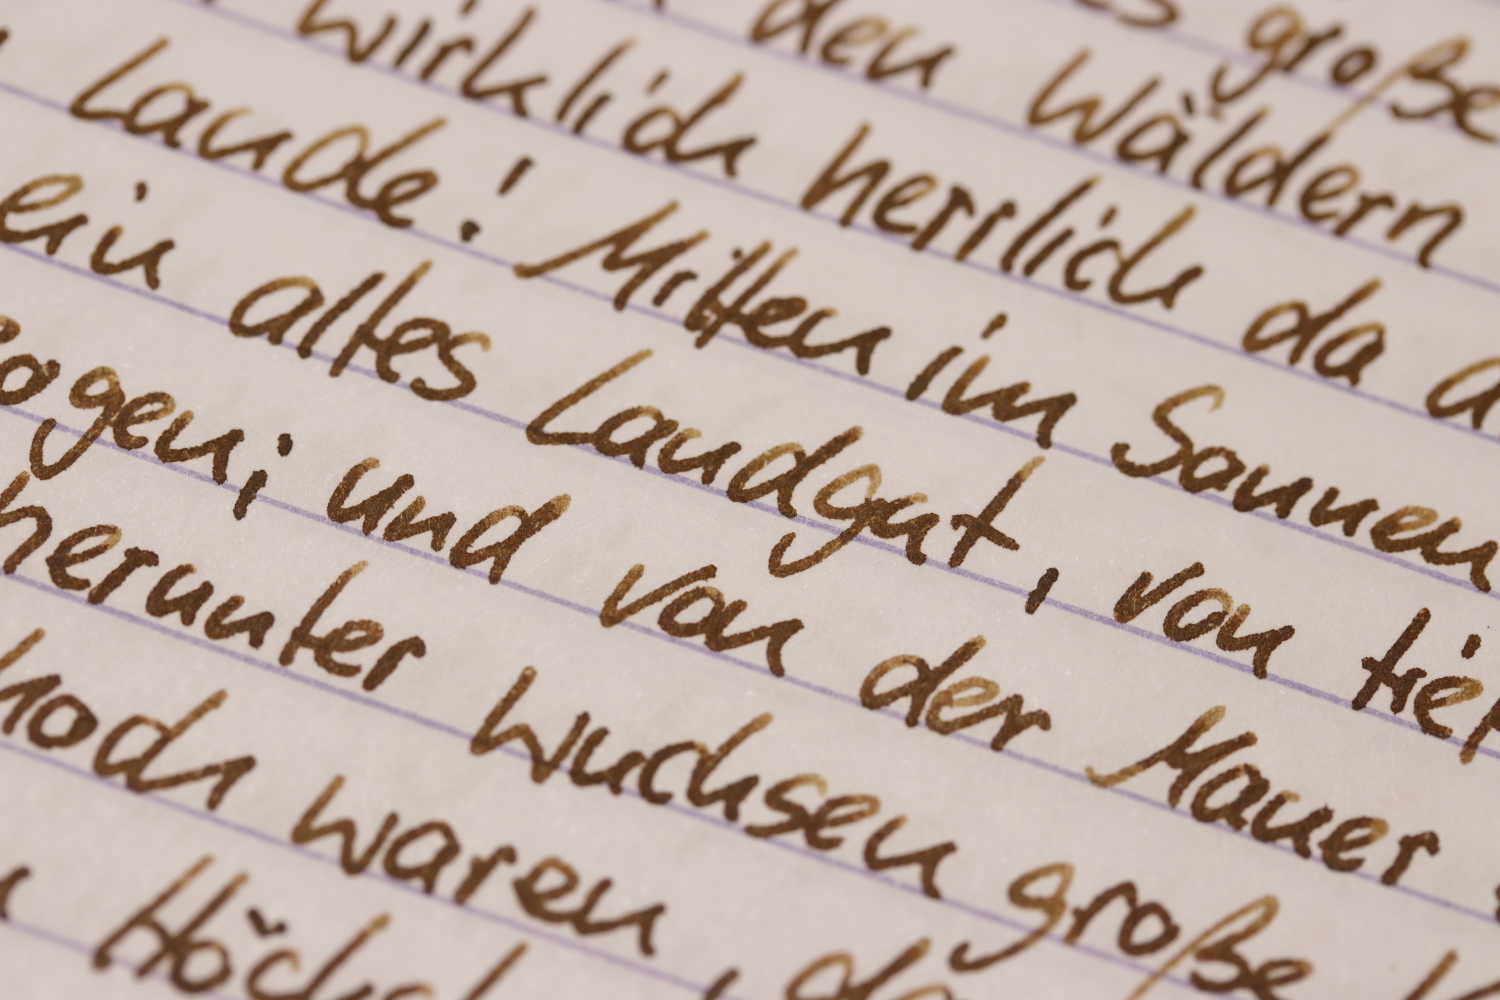 es große
den Wäldern
wirklich herrlich da
Lande! Mitten im Sonnen
ein altes Landgut, von tief
ogen; und von der Mauer
herunter wuchsen große
hoch waren,